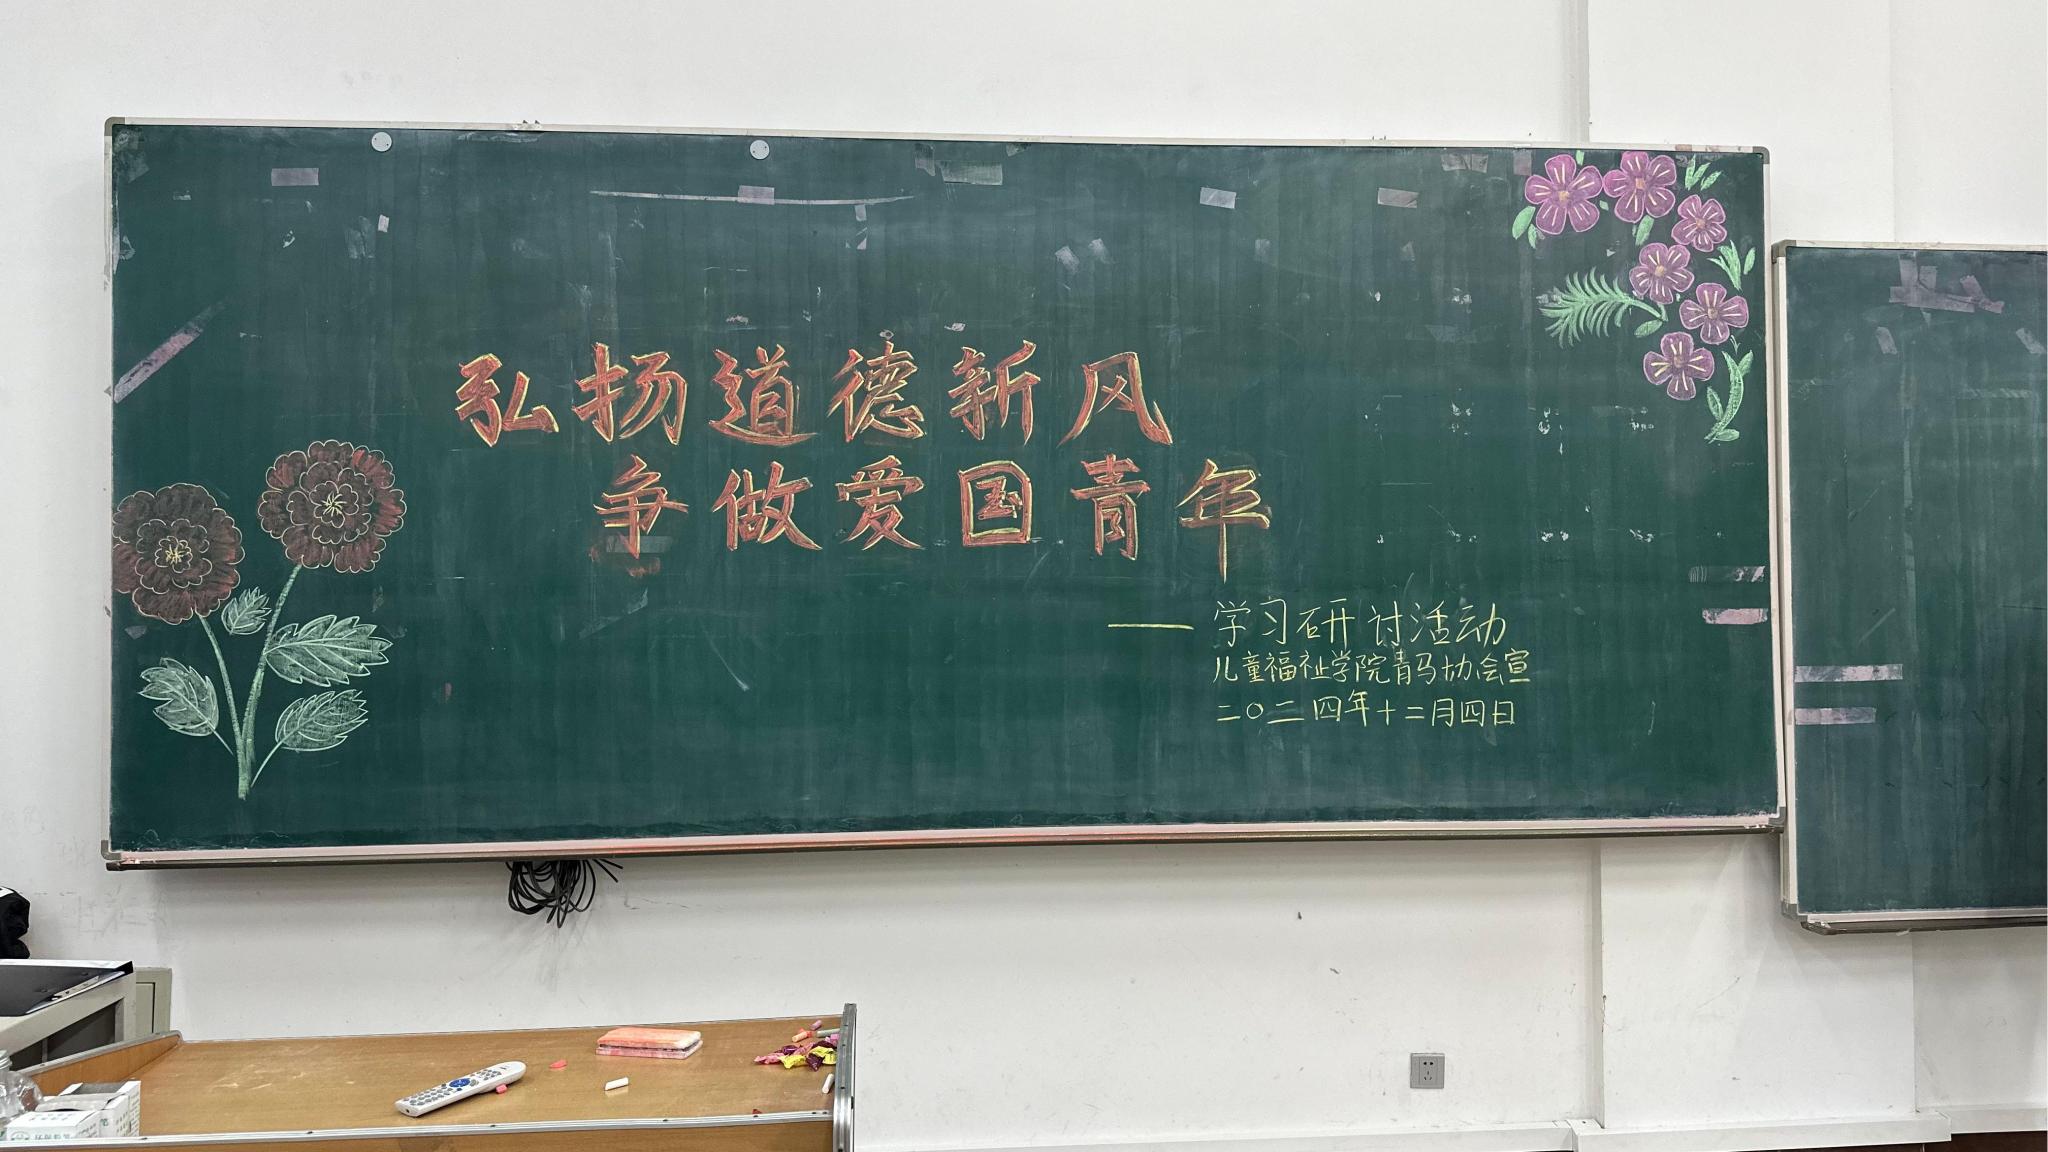 弘扬道德新风
争做爱国青年
——学习研讨活动
儿童福祉学院青马协会宣
二〇二四年十二月四日